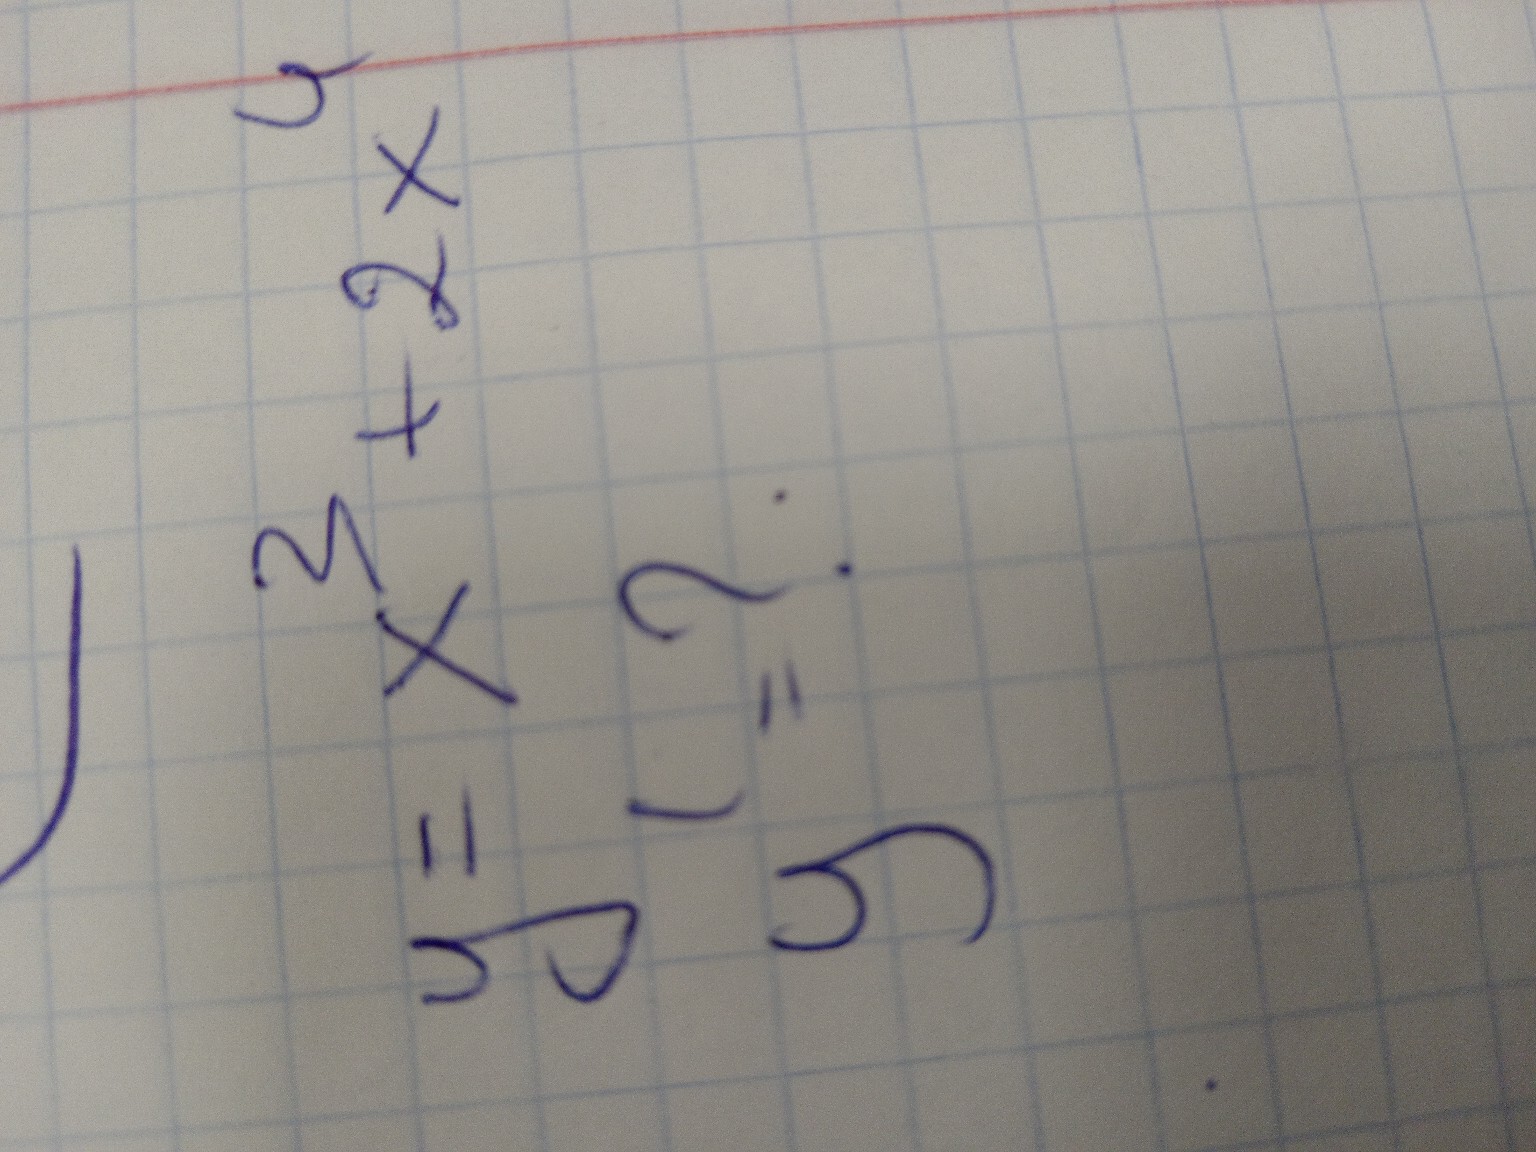 y = x³ + 2x⁴
y' = ?